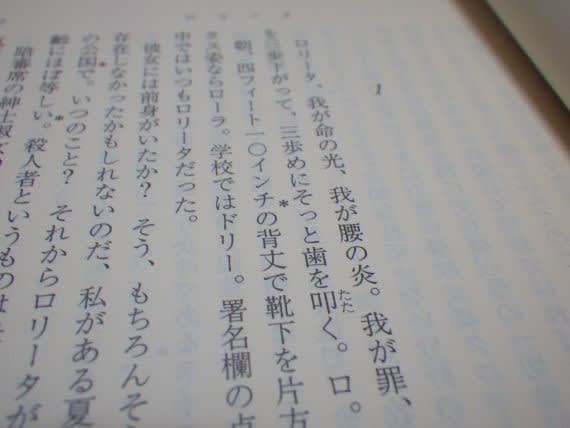 1
ロリータ、我が命の光、我が腰の炎。我が罪、
を三歩下がって、三歩めにそっと歯を叩く。ロ。
たた
*
朝、四フィート一〇インチの背丈で靴下を片方
クス姿ならローラ。学校ではドリー。署名欄の点
中ではいつもロリータだった。
彼女には前身がいたか? そう、もちろんそう
存在しなかったかもしれないのだ、私がある夏
*
の公国で。いつのこと? それからロリータが
*
齢にほぼ等しい。殺人者というものは
陪審席の紳士淑